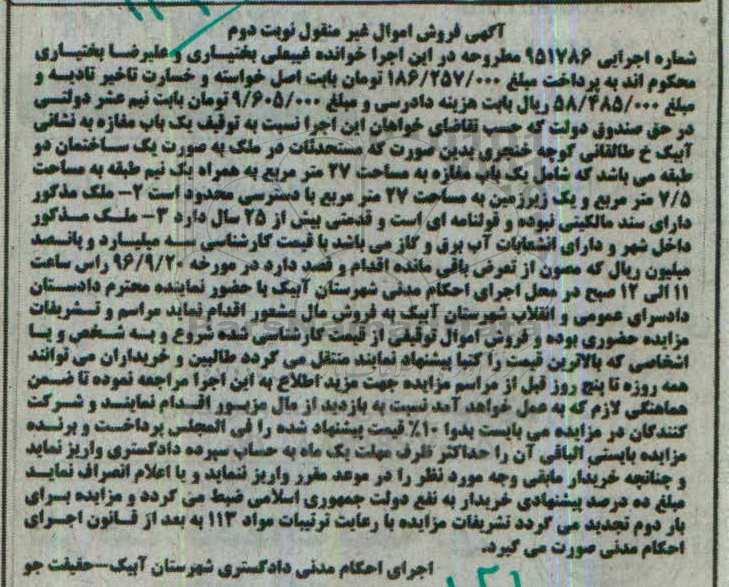 آگهی فروش اموال غیر منقول نوبت دوم
شماره اجرایی ۹۵۱۷۸۶ مطروحه در این اجرا خوانده غیبعلی بختیاری و علیرضا بختیاری
محکوم اند به پرداخت مبلغ ۱۸۶/۲۵۷/۰۰۰ تومان بابت اصل خواسته و خسارت تاخیر تادیه و
مبلغ ۵۸/۴۸۵/۰۰۰ ریال بابت هزینه دادرسی و مبلغ ۹/۶۰۵/۰۰۰ تومان بابت نیم عشر دولتی
در حق صندوق دولت که حسب تقاضای خواهان این اجرا نسبت به توقیف یک باب مغازه به نشانی
آبیک خ طالقانی کوچه خنجری بدین صورت که مستحدثات در ملک به صورت یک ساختمان دو
طبقه می باشد که شامل یک باب مغازه به مساحت ۲۷ متر مربع به همراه یک نیم طبقه به مساحت
۷/۵ متر مربع و یک زیرزمین به مساحت ۲۷ متر مربع با دسترسی محدود است ۲- ملک مذکور
دارای سند مالکیتی نبوده و قولنامه ای است و قدمتی بیش از ۲۵ سال دارد ۳- ملک مذکور
داخل شهر و دارای انشعابات آب برق و گاز می باشد با قیمت کارشناسی سه میلیارد و پانصد
میلیون ریال که مصون از تعرض باقی مانده اقدام و قصد دارد در مورخه ۹۶/۹/۲۰ راس ساعت
۱۱ الی ۱۲ صبح در محل اجرای احکام مدنی شهرستان آبیک با حضور نماینده محترم دادستان
دادسرای عمومی و انقلاب شهرستان آبیک به فروش مال مشعور اقدام نماید مراسم و تشریفات
مزایده حضوری بوده و فروش اموال توقیفی از قیمت کارشناسی شده شروع و به شخص و یا
اشخاصی که بالاترین قیمت را کتبا پیشنهاد نمایند منتقل می گردد طالبین و خریداران می توانند
همه روزه تا پنج روز قبل از مراسم مزایده جهت مزید اطلاع به این اجرا مراجعه نموده تا ضمن
هماهنگی لازم که به عمل خواهد آمد نسبت به بازدید از مال مزبور اقدام نمایند و شرکت
کنندگان در مزایده می بایست بدوا ۱۰٪ قیمت پیشنهاد شده را فی المجلس پرداخت و برنده
مزایده بایستی الباقی آن را حداکثر ظرف مهلت یک ماه به حساب سپرده دادگستری واریز نماید
و چنانچه خریدار مابقی وجه مورد نظر را در موعد مقرر واریز ننماید و یا اعلام انصراف نماید
مبلغ ده درصد پیشنهادی خریدار به نفع دولت جمهوری اسلامی ضبط می گردد و مزایده برای
بار دوم تجدید می گردد تشریفات مزایده با رعایت ترتیبات مواد ۱۱۳ به بعد از قانون اجرای
احکام مدنی صورت می گیرد.
اجرای احکام مدنی دادگستری شهرستان آبیک-حقیقت جو